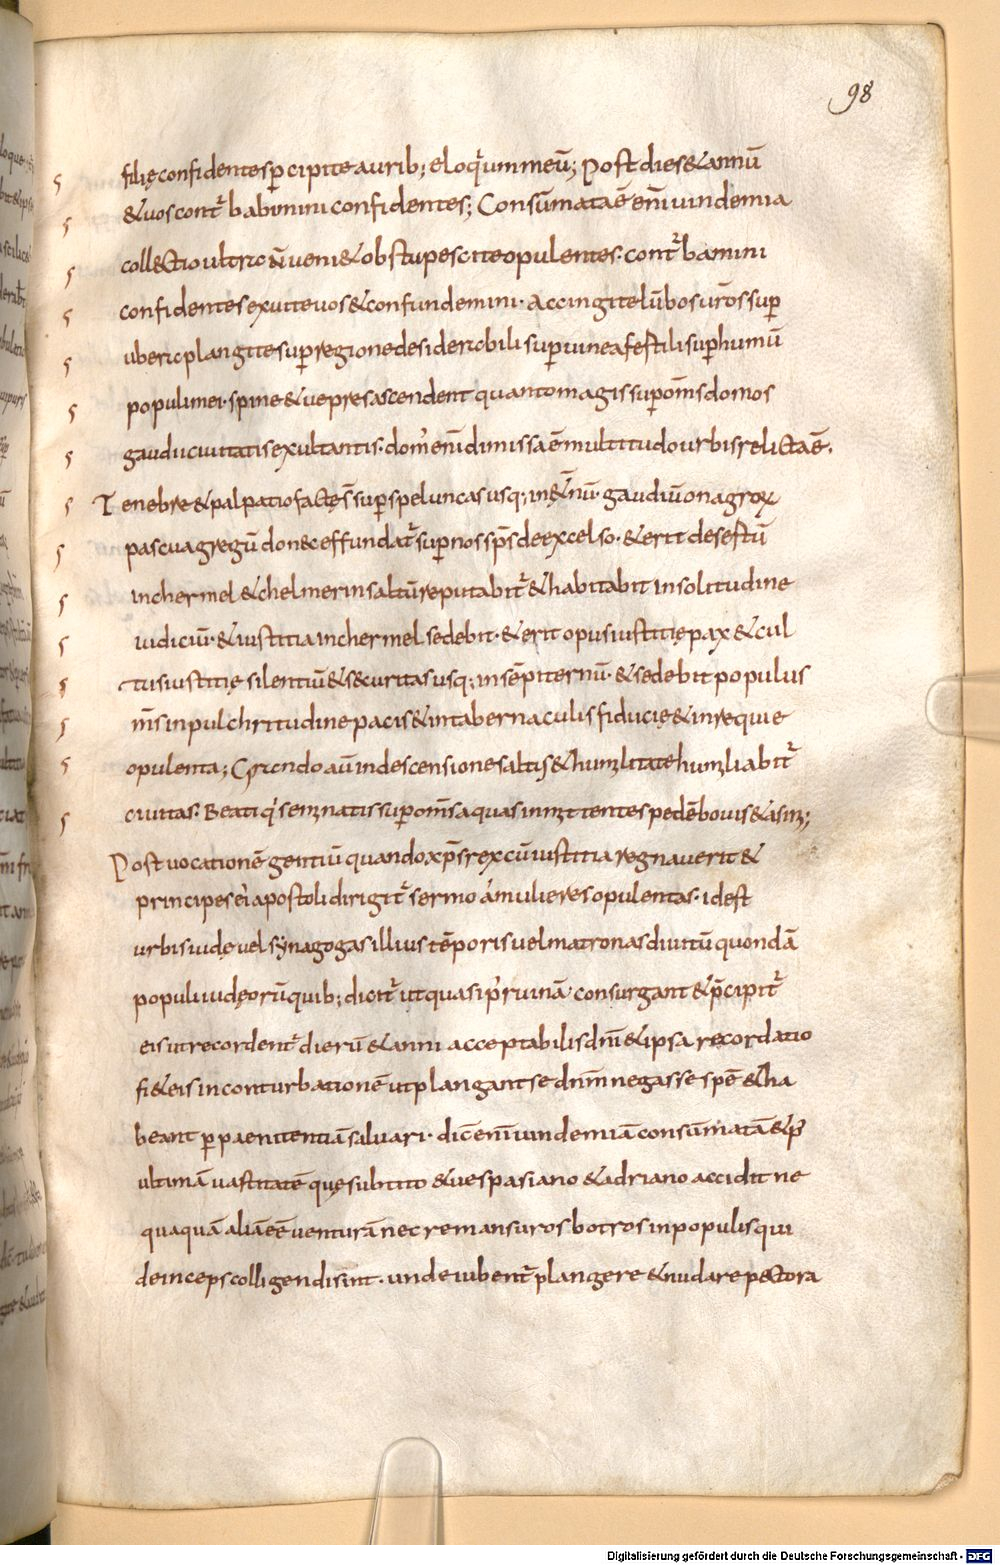 98
filię confidentes p̄cipite aurib; eloq̇um meū; Post dies & annū
& uos contr̄babimini confidentes; Consūmata ē enī uindemia
coll&ctio ultra ñ ueni& obstupescite opulentes· contr̄bamini
confidentes exuite uos & confundemini· Accingite lūbos ur̄os sup̄
ubera plangite sup̄ regione desiderabili sup̄ uinea fertili sup̄ humū
populi mei· spine & uepres ascendent quanto magis sup̄ om̄s domos
gaudii ciuitatis exultantis· dom' enī dimissa ē multitudo urbis relicta ē·
Tenebre & palpatio factę s̄ sup̄ speluncas usq; in &̄nū· gaudiū onagroꝝ
pascua gregū donec effundat̄ sup̄ nos sp̄s de excelso· & erit desertū
in chermel & chelmer in saltū reputabit̄ & habitabit in solitudine
iudiciū· & iustitia in chermel sedebit· & erit opus iustitię pax & cul
tus iustitię silentiū & securitas usq; in sēpiternū· & sedebit populus
m̄s in pulchritudine pacis & in tabernaculis fiducię & in requie
opulenta; Grando aū in descensione saltis & humilitate humiliabit̄
ciuitas· Beati q' seminatis sup̄ om̄s aquas inmittentes pedē bouis & asini;
Post uocationē gentiū quando xp̄s rex cū iustitia regnauerit &
principes ei' apostoli dirigit̄ sermo ad mulieres opulentas· id est
urbis iudę uel synagogas illius tēporis uel matronas diuitū quondā
populi iudęorū quib; dicit̄ ut quasi p' ruinā consurgant & p̄cipit̄
eis ut recordent̄ dierū & anni acceptabilis dn̄i & ipsa recordatio
fi& eis in conturbationē ut plangant se dn̄m negasse spē & ha
beant p̄ paenitentiā saluari· dic enī uindemiā consūmatā & p̄
ultimā uastitatē quę sub tito & uespasiano & adriano accidit ne
quaquā aliā eē uenturā nec remansuros botros in populis qui
deinceps colligendi sint· unde iubent̄ plangere & nudare pectora
Digitalisierung gefördert durch die Deutsche Forschungsgemeinschaft - DFG